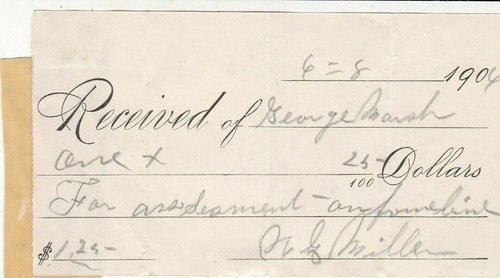 6 - 8 1904
Received of George Marsh
One x 25/100 Dollars
For assessment on fone line
$1.25 Miller